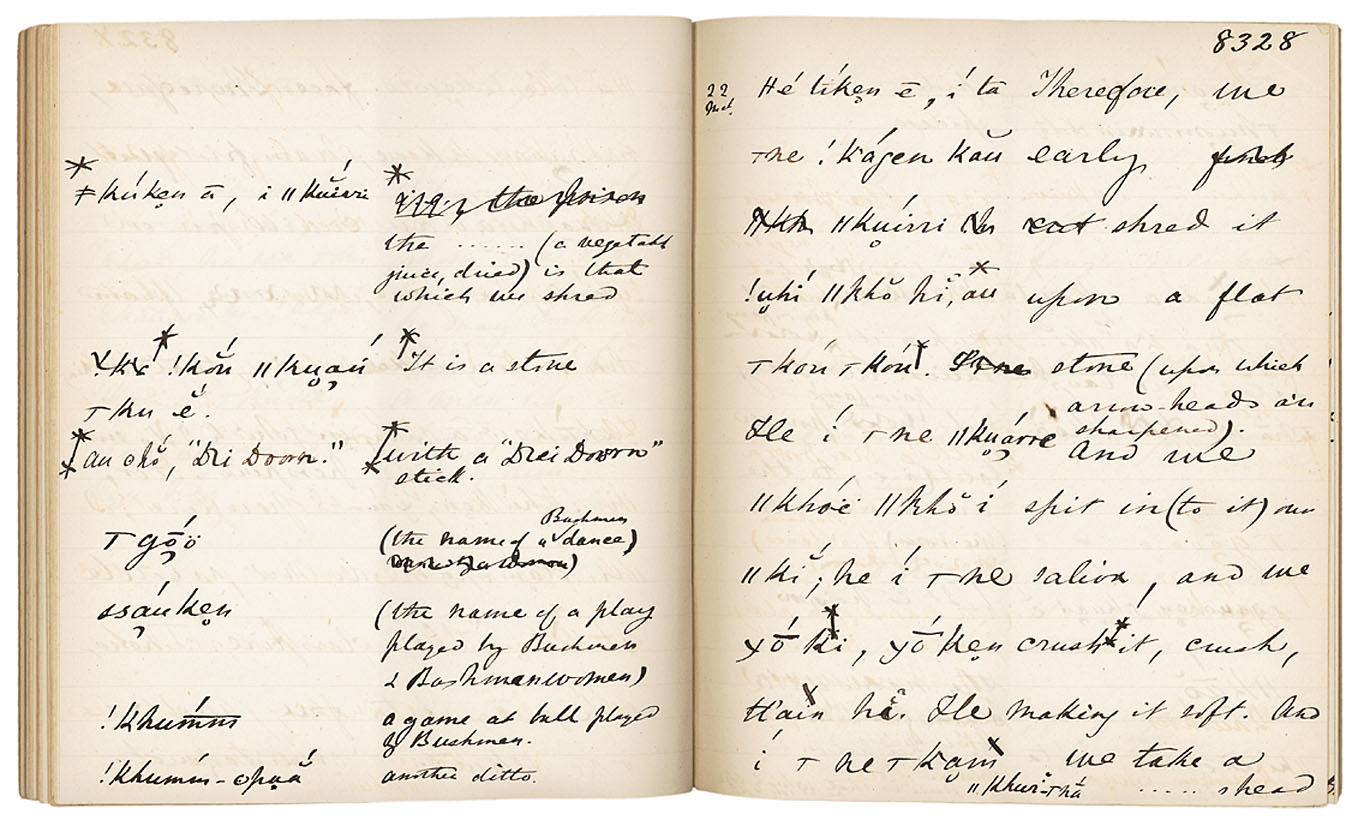 ǂkúken ā, i ǁkŭirri
the ...... (a vegetable
juice, dried) is that
which we shred
!kŏú ǁkuạú
It is a stone
ꞇku ĕ.
au ʘhŏ, "Dri Doorn."
with a "Drei Doorn"
stick.
ꞇgó̄ö
(the name of a Bushman dance)
ssạ́uken
(the name of a play
played by Bushmen
& Bushmanwomen)
!khumḿm
a game at ball played
by Bushmen.
!khumḿm-ʘpuă
another ditto.
8328
22
Hé tíken ē, í ta Therefore, we
ꞇne !kágen kau early
ǁkuírri shred it
!uhí ǁkhŏ hĭ, au upon a flat
ꞇkóú ꞇkóú. stone (upon which
arrow-heads are
sharpened).
He í ꞇne ǁkuárre And we
ǁkhóë ǁkhŏ í spit in (to it) our
ǁkĭ; he í ꞇne saliva, and we
yó̄ ki, yó̄ken crush it, crush,
ttain hĕ. He making it soft. And
í ꞇne ꞇkạm we take a
ǁkhuĭ-ꞇhă ..... shead